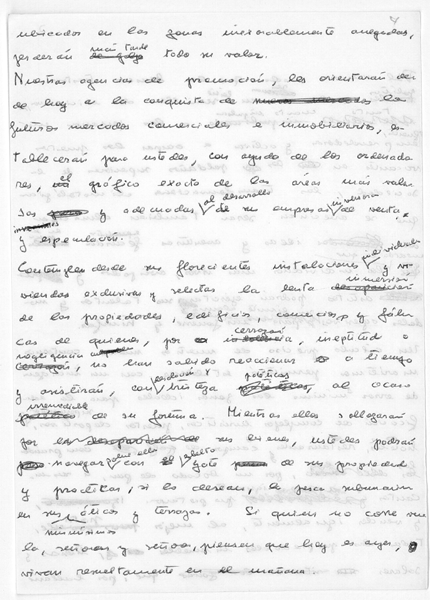 ubicados en las zonas inexorablemente anegadas,
perderán más tarde todo su valor.
Nuestras agencias de promoción, les orientarán des
de hoy a la conquista de los
futuros mercados comerciales e inmobiliarios, es
tablecerán para ustedes, con ayuda de los ordenado
res, el gráfico exacto de las áreas más valio
sas y adecuadas al desarrollo de su empresa, inversión de venta
y especulación.
Contemplen desde sus florecientes instalaciones y vi
viendas exclusivas y selectas la lenta inmersión
de las propiedades, edificios, comercios y fábri
cas de quienes, por cerrazón, ineptitud o
negligencia no han sabido reaccionar a tiempo
y asistirán, con tristeza al ocaso
irremediable de su fortuna. Mientras ellos sollozarán
por sus bienes, ustedes podrán
navegar sobre ellos con el yate de su propiedad
y practicar, si lo desean, la pesca submarina
en sus áticos y terrazas. Si quieren no correr
mismísimos
la, señoras y señores, piensen que hoy es ayer,
vivan resueltamente en el mañana.